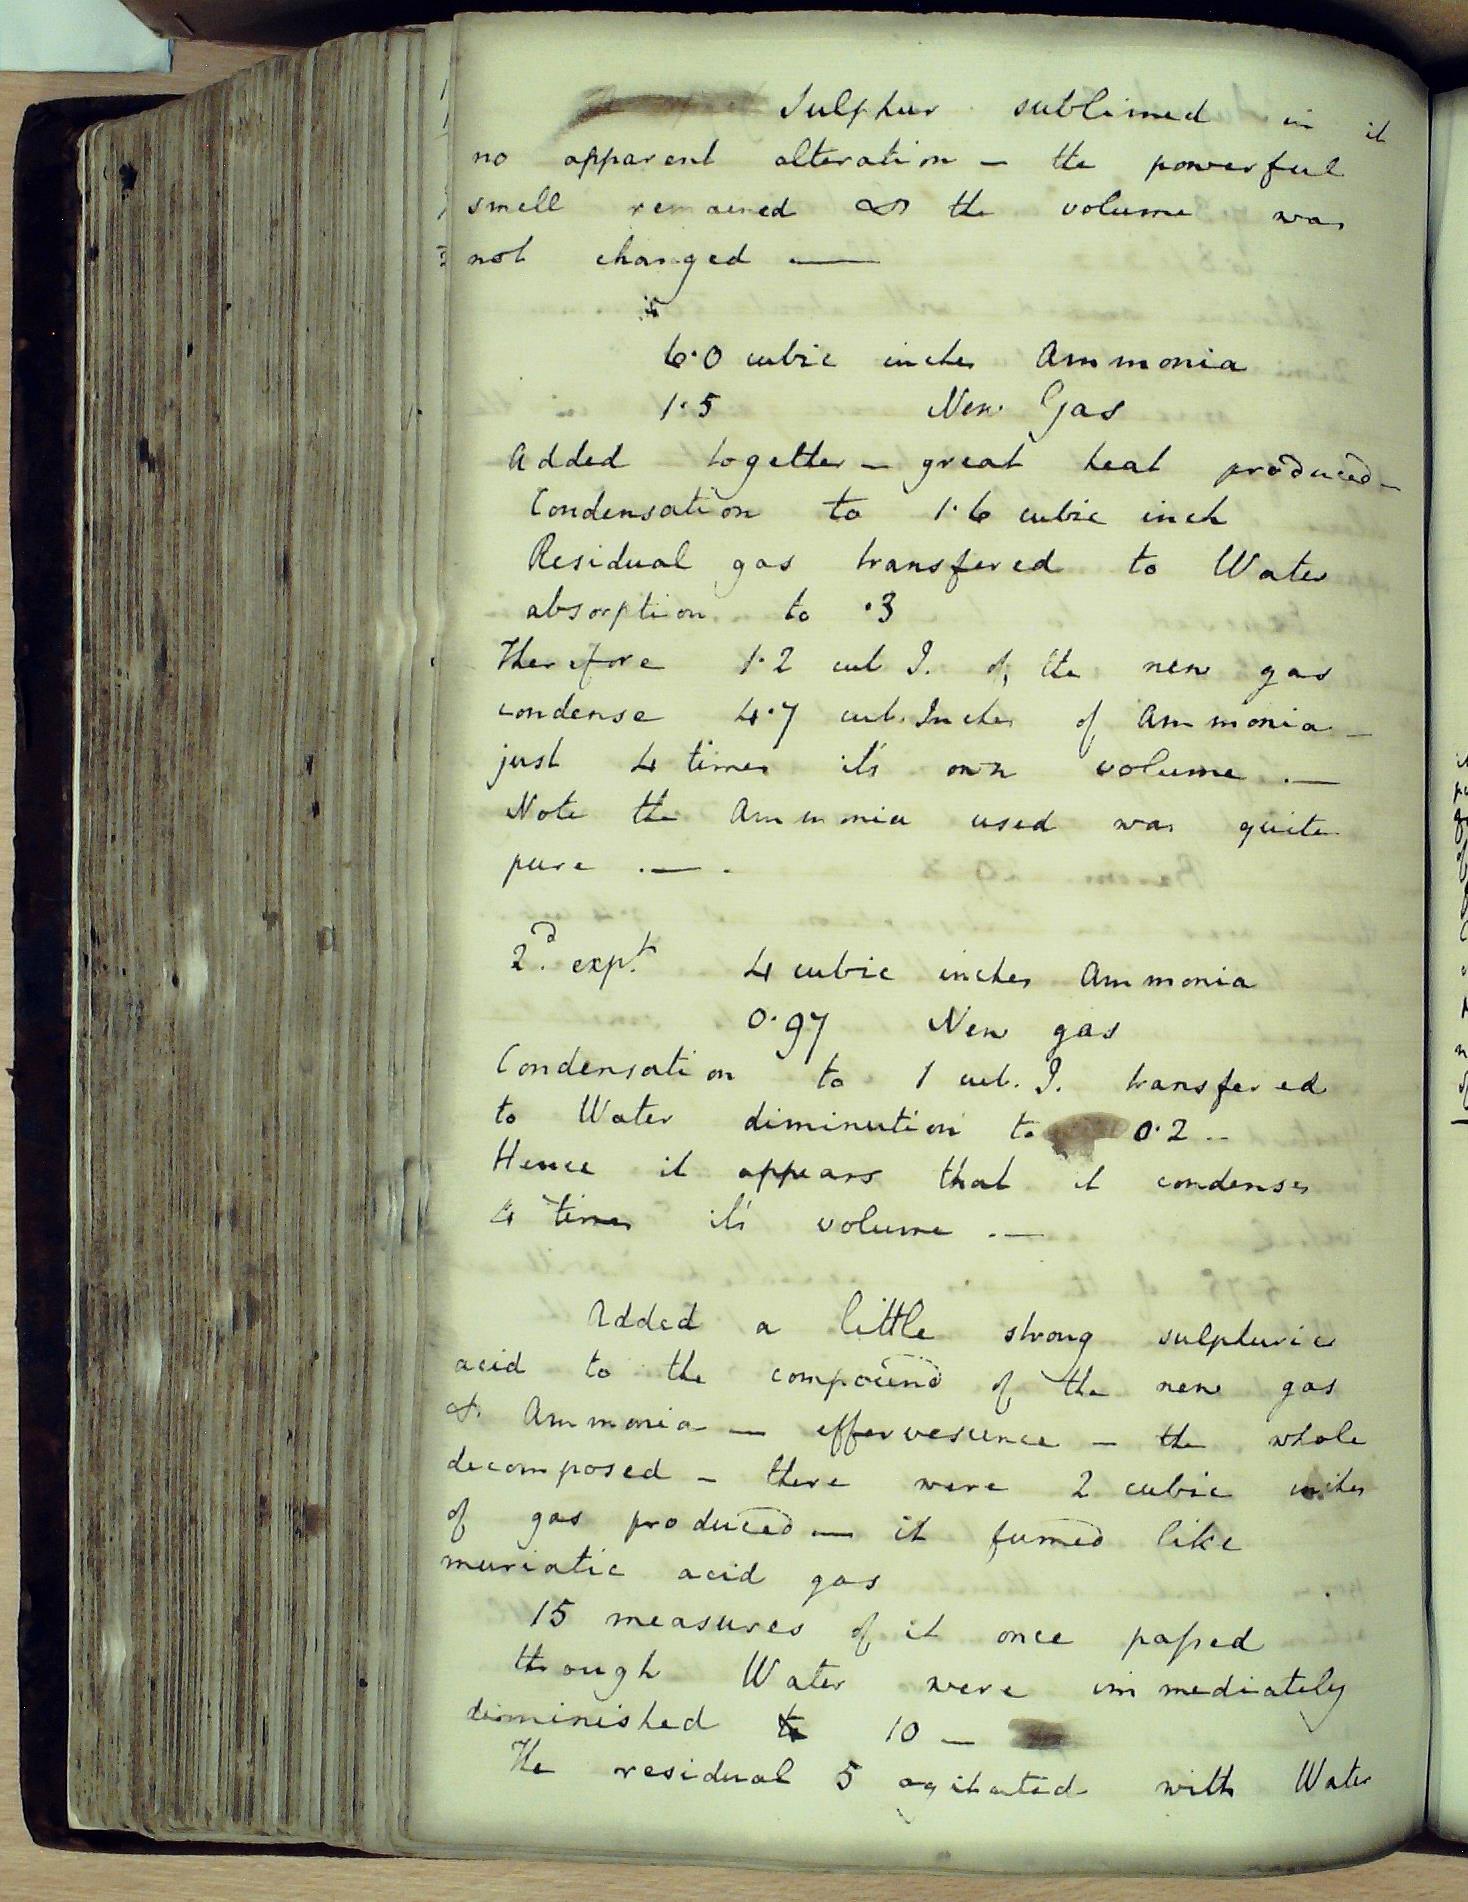 Sulphur sublimed in it
no apparent alteration — the powerful
smell remained & the volume was
not changed —
6·0 cubic inches Ammonia
1·5 New Gas
Added together — great heat produced —
Condensation to 1·6 cubic inch
Residual gas transfered to Water
absorption to ·3
Therefore 1·2 cub I. of the new gas
condense 4·7 cub. Inches of Ammonia —
just 4 times it's own volume . —
Note the Ammonia used was quite
pure . — .
2d. expt. 4 cubic inches Ammonia
0·97 New gas
Condensation to 1 cub. I. transfered
to Water diminution to 0·2 —
Hence it appears that it condenses
4 times it's volume . —
Added a little strong sulphuric
acid to the compound of the new gas
& Ammonia — effervescence — the whole
decomposed — there were 2 cubic inches
of gas produced — it fumed like
muriatic acid gas
15 measures of it once paſsed
through Water were immediately
diminished to 10 —
The residual 5 agitated with Water